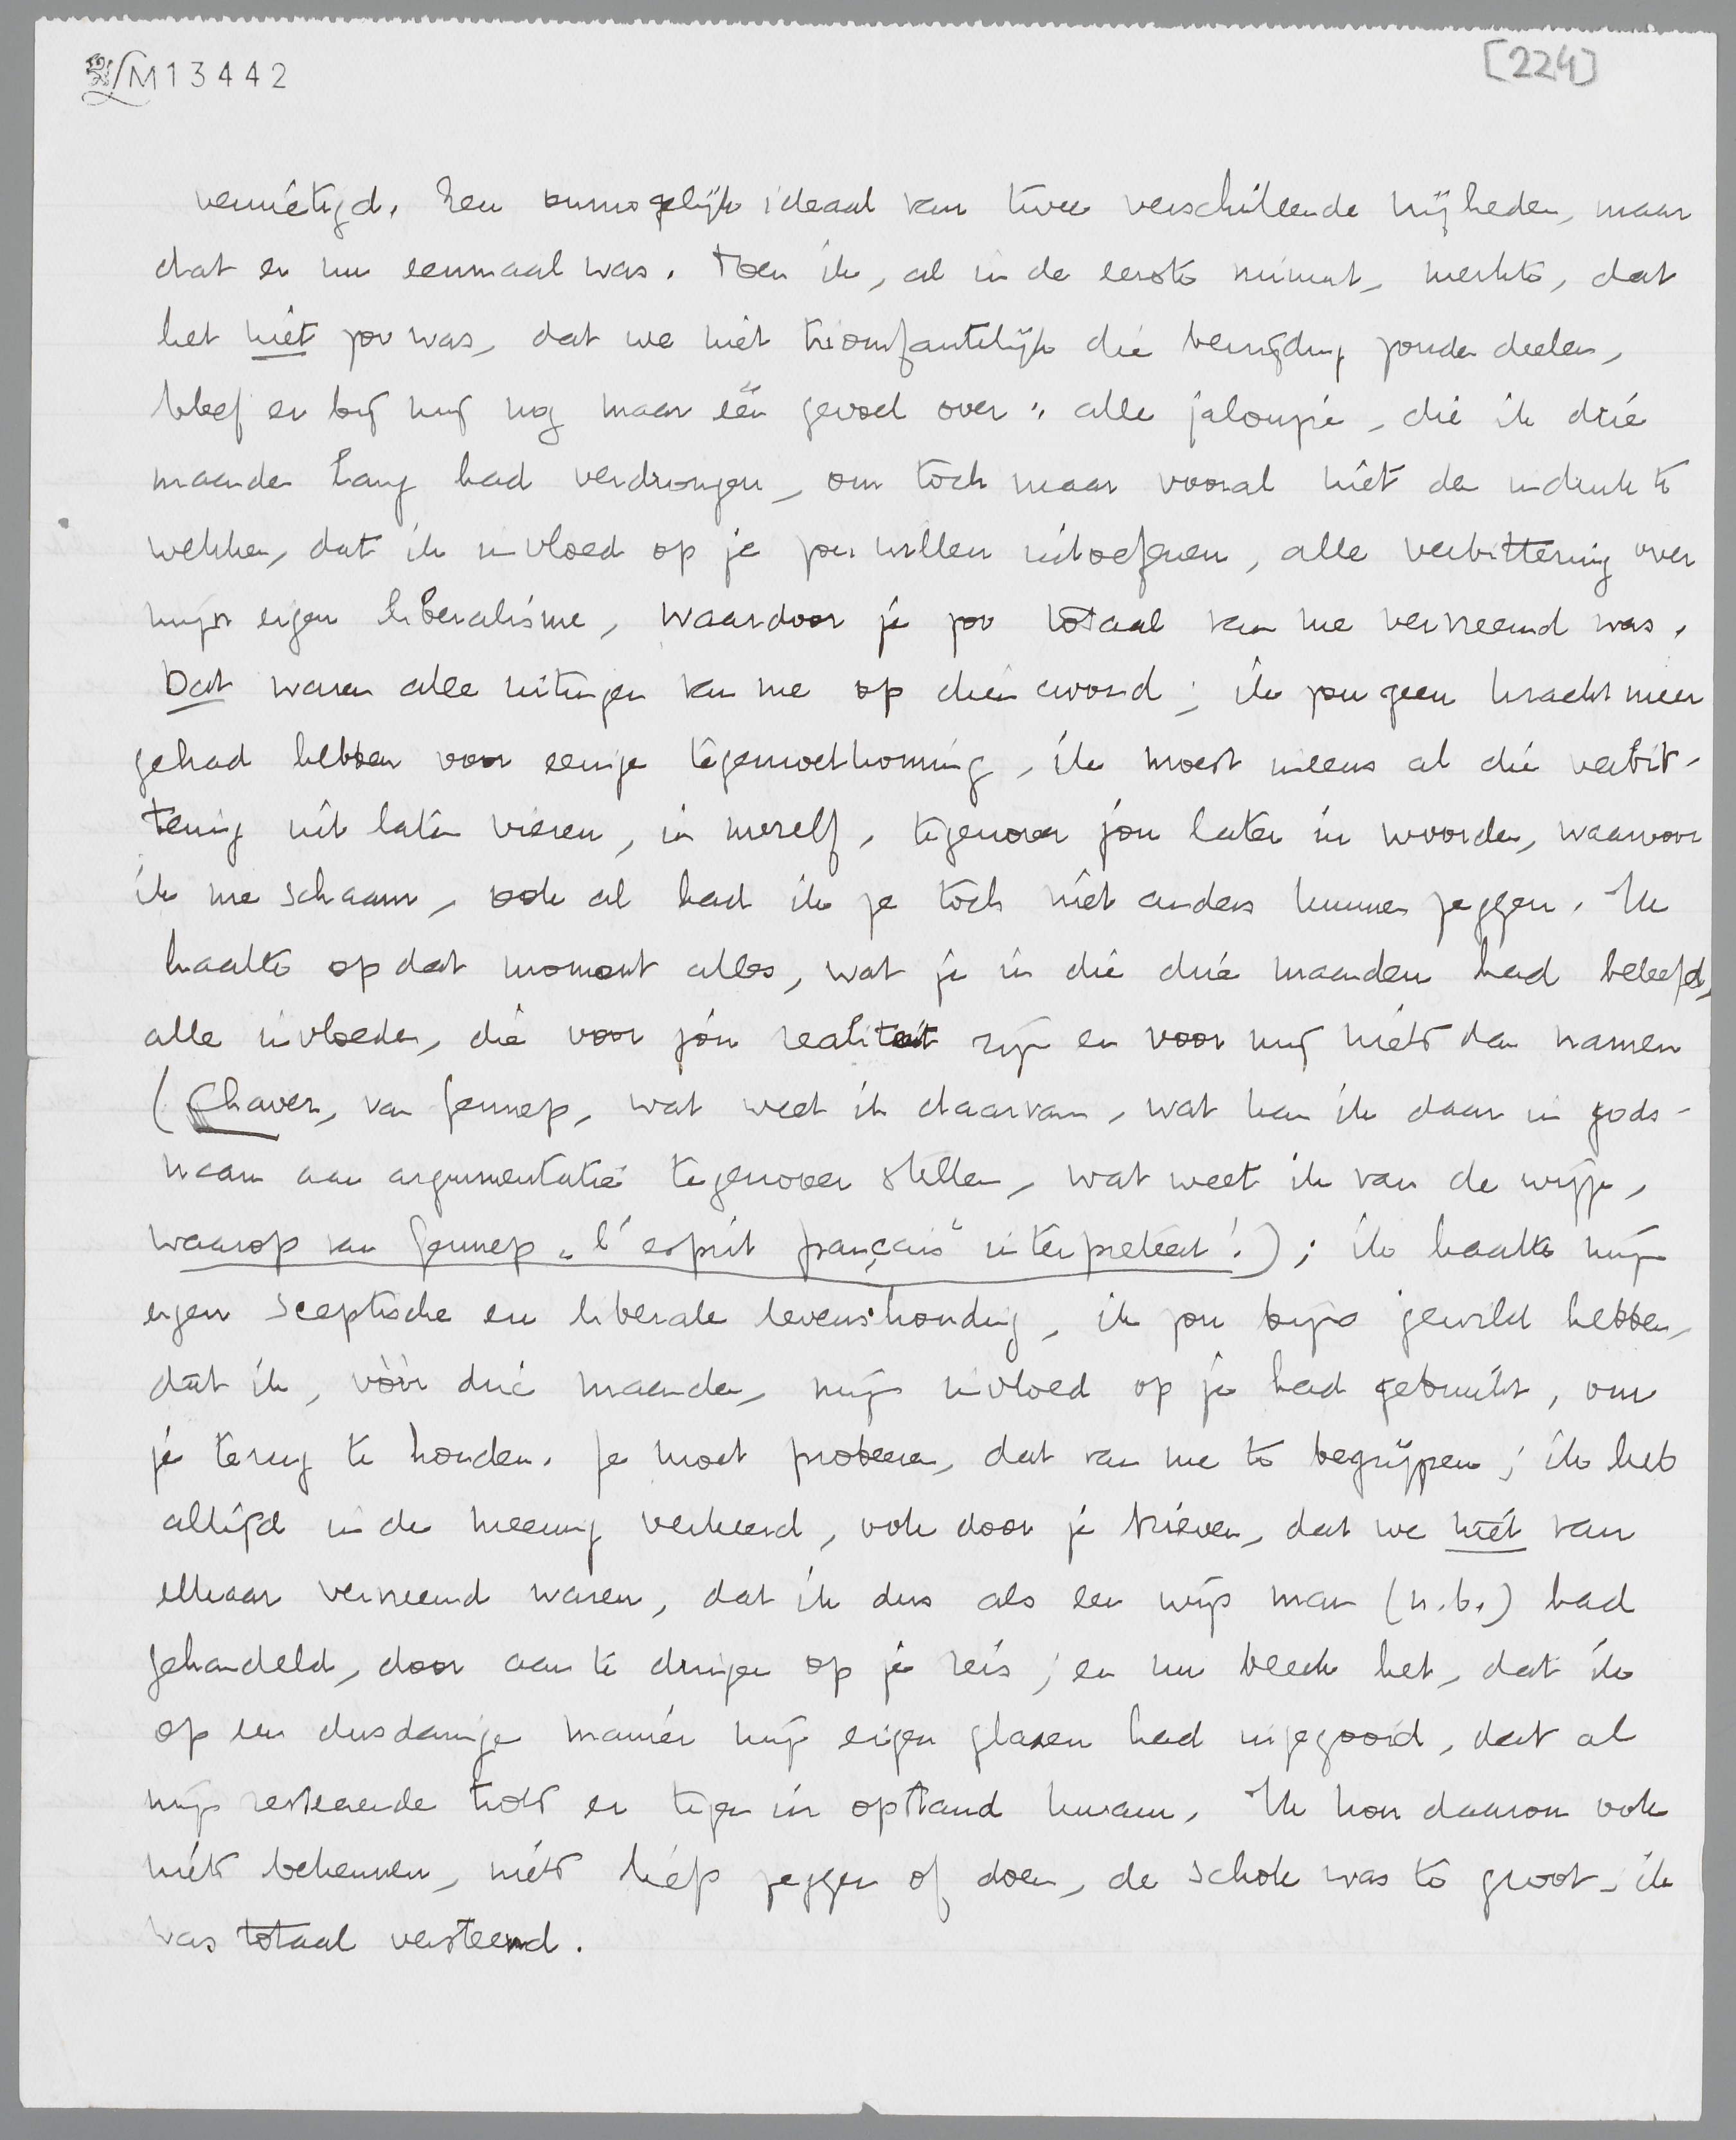 LM13442
[224]
vernietigd. Een onmogelijk ideaal van twee verschillende vrijheden, maar
dat er nu eenmaal was. Toen ik, al in de eerste minuut, merkte, dat
het niet zoo was, dat we niet triomfantelijk die bevrijding zouden deelen,
bleef er bij mij nog maar één gevoel over: alle jalouzie, die ik drie
maanden lang had verdrongen, om toch maar vooral niet den indruk te
wekken, dat ik invloed op je zou willen uitoefenen, alle verbittering over
mijn eigen liberalisme, waardoor je zoo totaal van me vervreemd was.
Dat waren alle uitingen van me op dien avond; ik zou geen kracht meer
gehad hebben voor eenige tegemoetkoming, ik moest ineens al die verbit-
tering uit laten vieren, in mezelf, tegenover jou later in woorden, waarvoor
ik me schaam, ook al had ik je toch niet anders kunnen zeggen. Ik
haatte op dat moment alles, wat je in die drie maanden had beleefd,
alle invloeden, die voor jóu realiteit zijn en voor mij niets dan namen
(Chaver, van Gennep, wat weet ik daarvan, wat kan ik daar in gods-
naam aan argumentatie tegenover stellen, wat weet ik van de wijze,
waarop van Gennep „l'esprit français" interpreteert!); ik haatte mijn
eigen sceptische en liberale levenshouding, ik zou bijna gewild hebben,
dat ik, vòòr drie maanden, mijn invloed op je had gebruikt, om
je terug te houden. Je moet probeeren, dat van me te begrijpen; ik heb
altijd in de meening verkeerd, ook door je brieven, dat we niet van
elkaar vervreemd waren, dat ik dus als een wijs man (n.b.) had
gehandeld, door aan te dringen op je reis; en nu bleek het, dat ik
op een dusdanige manier mijn eigen glazen had ingegooid, dat al
mijn resteerende trots er tegen in opstand kwam. Ik kon daarom ook
niets bekennen, niets liefs zeggen of doen, de schok was te groot, ik
was totaal versteend.